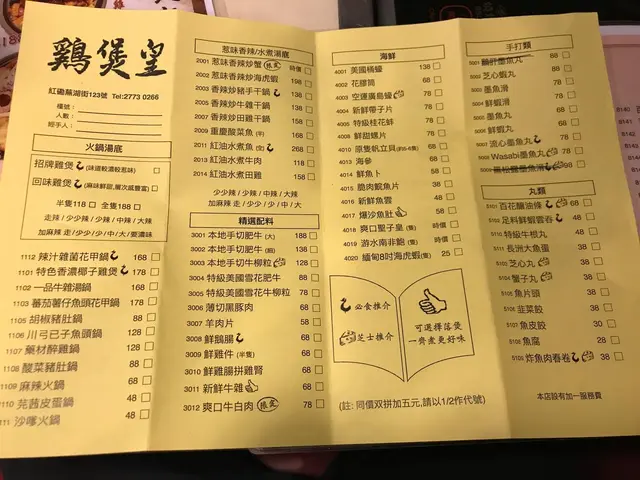 鷄煲皇
紅磡蕪湖街123號 Tel:2773 0266
檯號：
人數：
經手人：
火鍋湯底
招牌雞煲 (味道較濃較惹味)
回味雞煲 (麻辣鮮甜,層次感豐富)
半隻118 全隻188
走辣 / 少少辣 / 少辣 / 中辣 / 大辣
加麻辣 走/少少/少/中/大/要濃味
1112 辣汁雞煲花甲鍋 168
1101 特色香濃椰子雞煲 178
1102 一品牛雜湯鍋 168
1103 蕃茄薯仔魚頭花甲鍋 178
1105 胡椒豬肚鍋 88
1106 川弓已子魚頭鍋 128
1107 藥材醉雞鍋 128
1108 酸菜豬肚鍋 88
1109 麻辣火鍋 68
1110 芫茜皮蛋鍋 48
1111 沙嗲火鍋 48
惹味香辣/水煮湯底
2001 惹味香辣炒蟹 限定 時價
2002 惹味香辣炒海虎蝦 198
2003 香辣炒豬手干鍋 138
2005 香辣炒牛雜干鍋 138
2006 香辣炒田雞干鍋 138
2009 重慶酸菜魚 168
2011 紅油水煮魚 268
2013 紅油水煮牛肉 118
2014 紅油水煮田雞 158
少少辣 / 少辣 / 中辣 / 大辣
加麻辣 走 / 少少 / 少 / 中 / 大
精選配料
3001 本地手切肥牛 (大) 188
3002 本地手切肥牛 (細) 138
3003 本地手切牛柳粒 128
3004 特級美國雪花肥牛 88
3005 特級美國雪花牛柳粒 78
3006 薄切黑豚肉 68
3007 羊肉片 58
3008 鮮鵝腸 68
3009 鮮雞件 (半隻) 68
3010 鮮雞腸拼雞腎 68
3011 新鮮牛雜 68
3012 爽口牛白肉 限定 78
海鮮
4001 美國桶蠔 138
4002 花膠筒 68
4003 空運廣島蠔 78
4004 新鮮帶子片 78
4006 特級桂花蚌 78
4008 鮮甜螺片 78
4010 原隻帆立貝(約5-6隻) 68
4013 海參 68
4014 鮮魚卜 58
4015 脆肉鯇魚片 38
4016 新鮮魚雲 48
4017 爆沙魚肚 58
4018 爽口堅子皇 (隻) 時價
4019 游水南非鮑 (隻) 時價
4021 緬甸8吋海虎蝦(隻) 25
必食推介
芝士推介
可選擇落煲
一齊煮更好味
(註: 同價双拼加五元,請以1/2作代號)
手打類
5002 芝心蝦丸
5003 墨魚滑 68
5004 鮮蝦滑 78
5005 墨魚丸 58
5006 鮮蝦丸 68
5007 流心墨魚丸 78
5008 Wasabi墨魚丸 68
丸類
5101 百花釀油條 68
5102 足料鮮蝦雲吞 48
5110 特級牛根丸 48
5111 長洲大魚蛋 48
5103 芝心丸 38
5104 蟹子丸 38
5105 魚片頭 38
5106 韭菜餃 38
5107 魚皮餃 30
5108 魚腐 28
5109 炸魚肉春卷 38
本店設有加一服務費